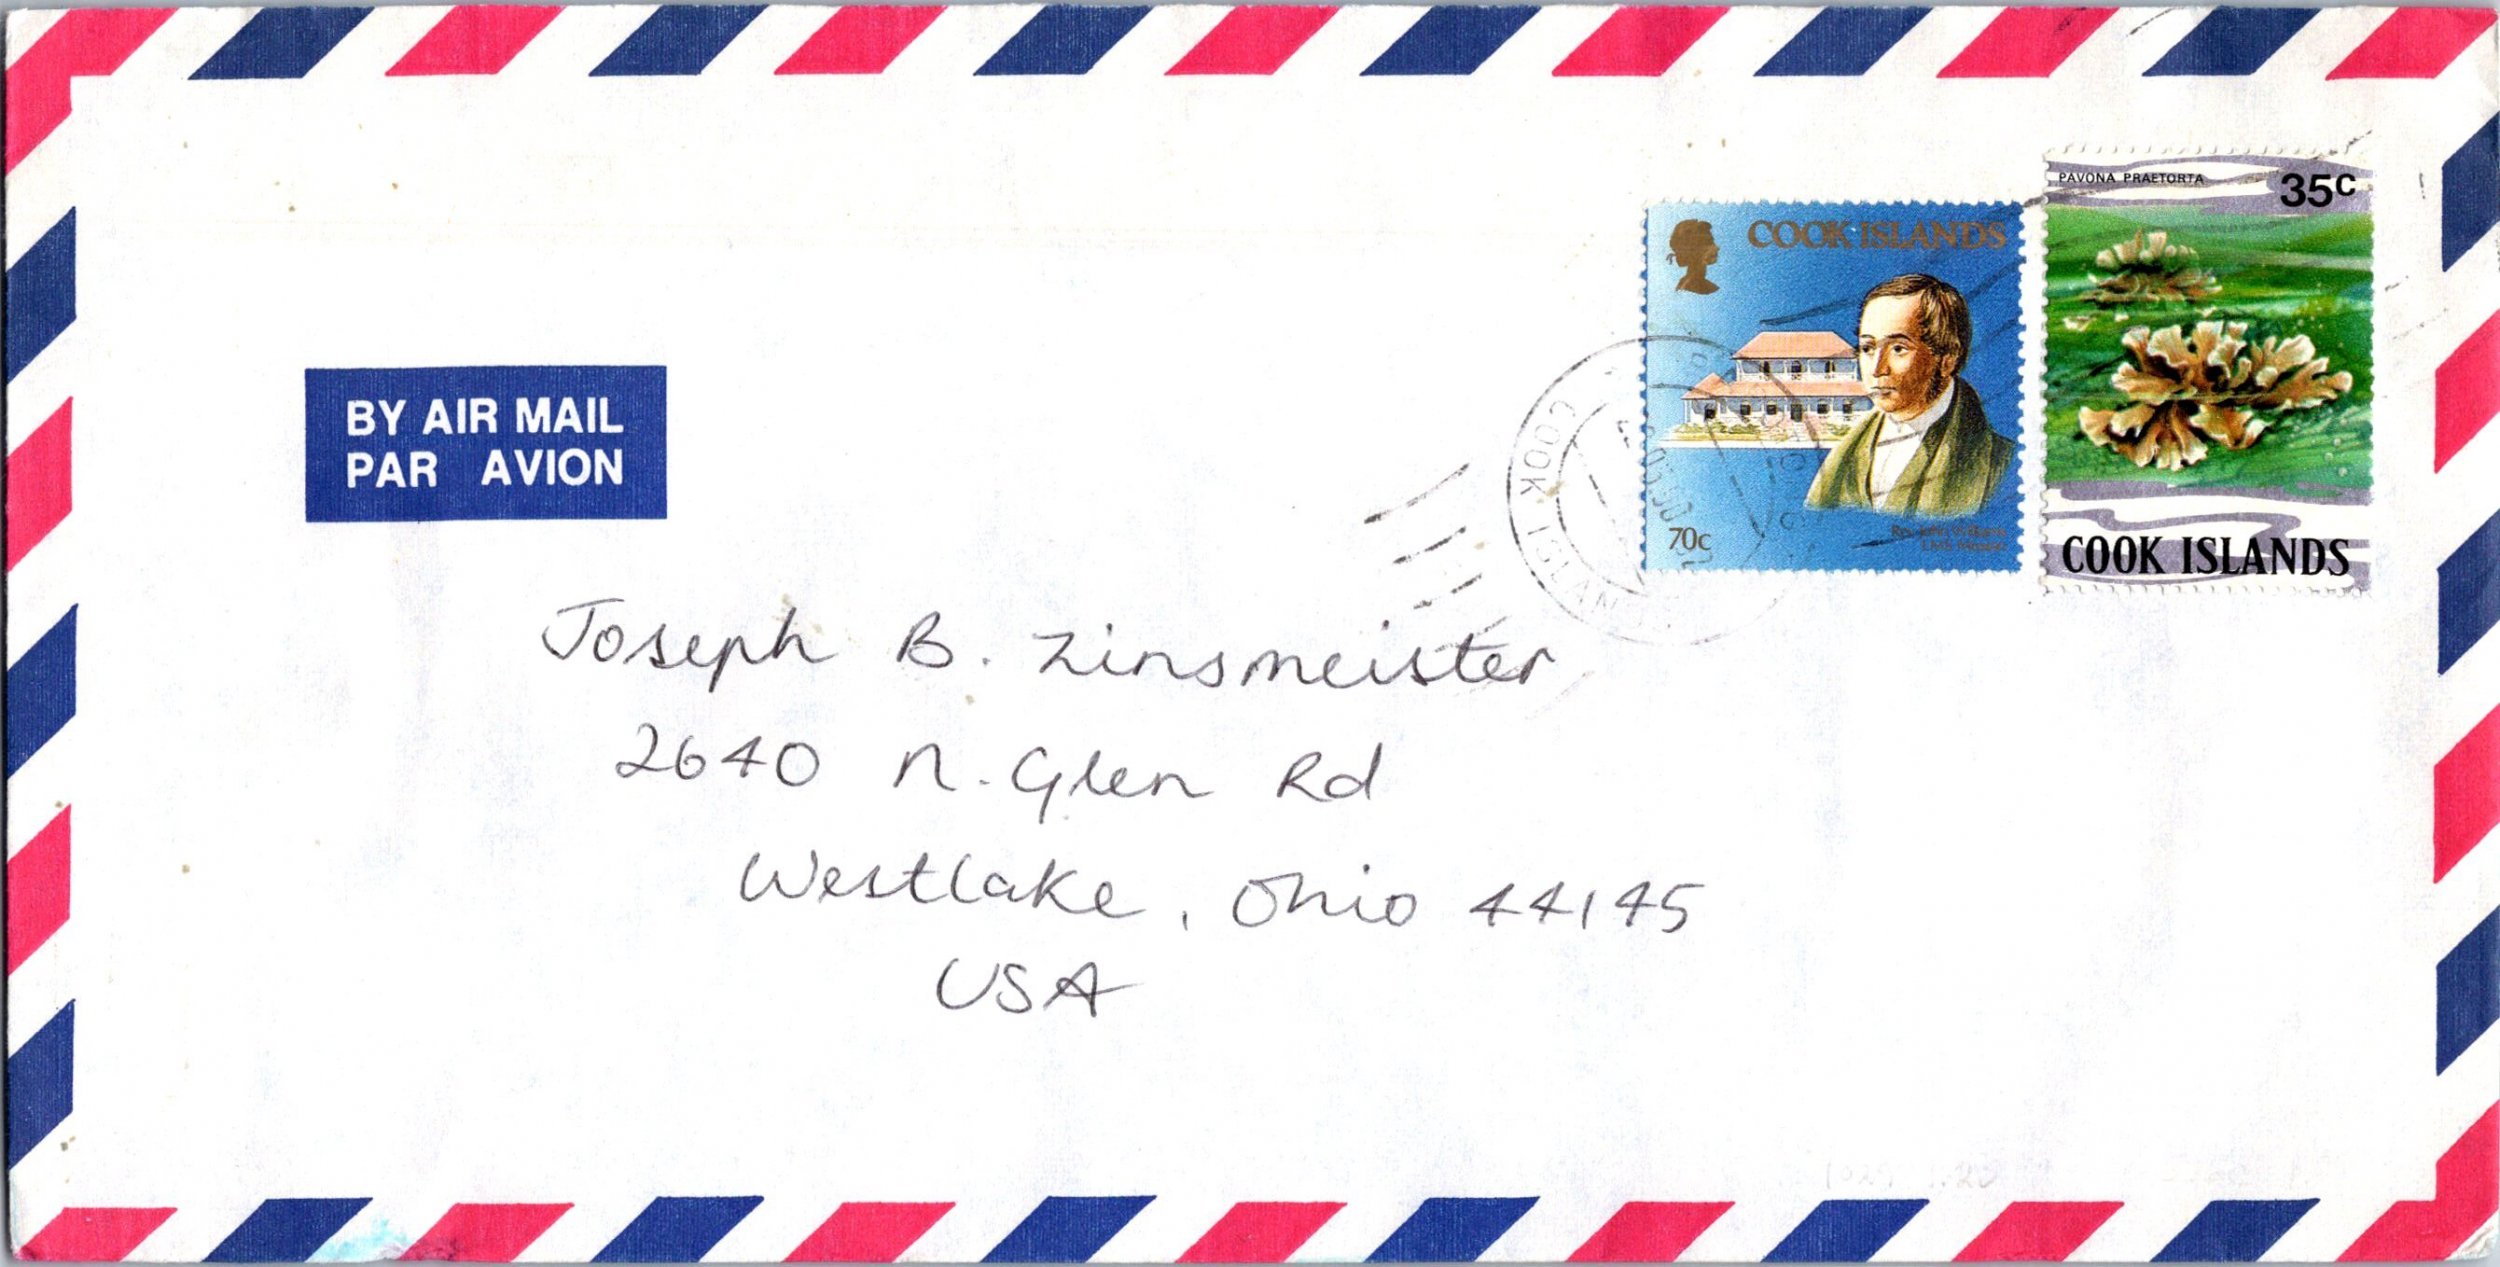 PAVONA PRAETORTA
35c
COOK ISLANDS
COOK ISLANDS
70c
COOK ISLAN
BY AIR MAIL
PAR AVION
Joseph B. Zinsmeister
2640 N. Glen Rd
Westlake, Ohio 44145
USA